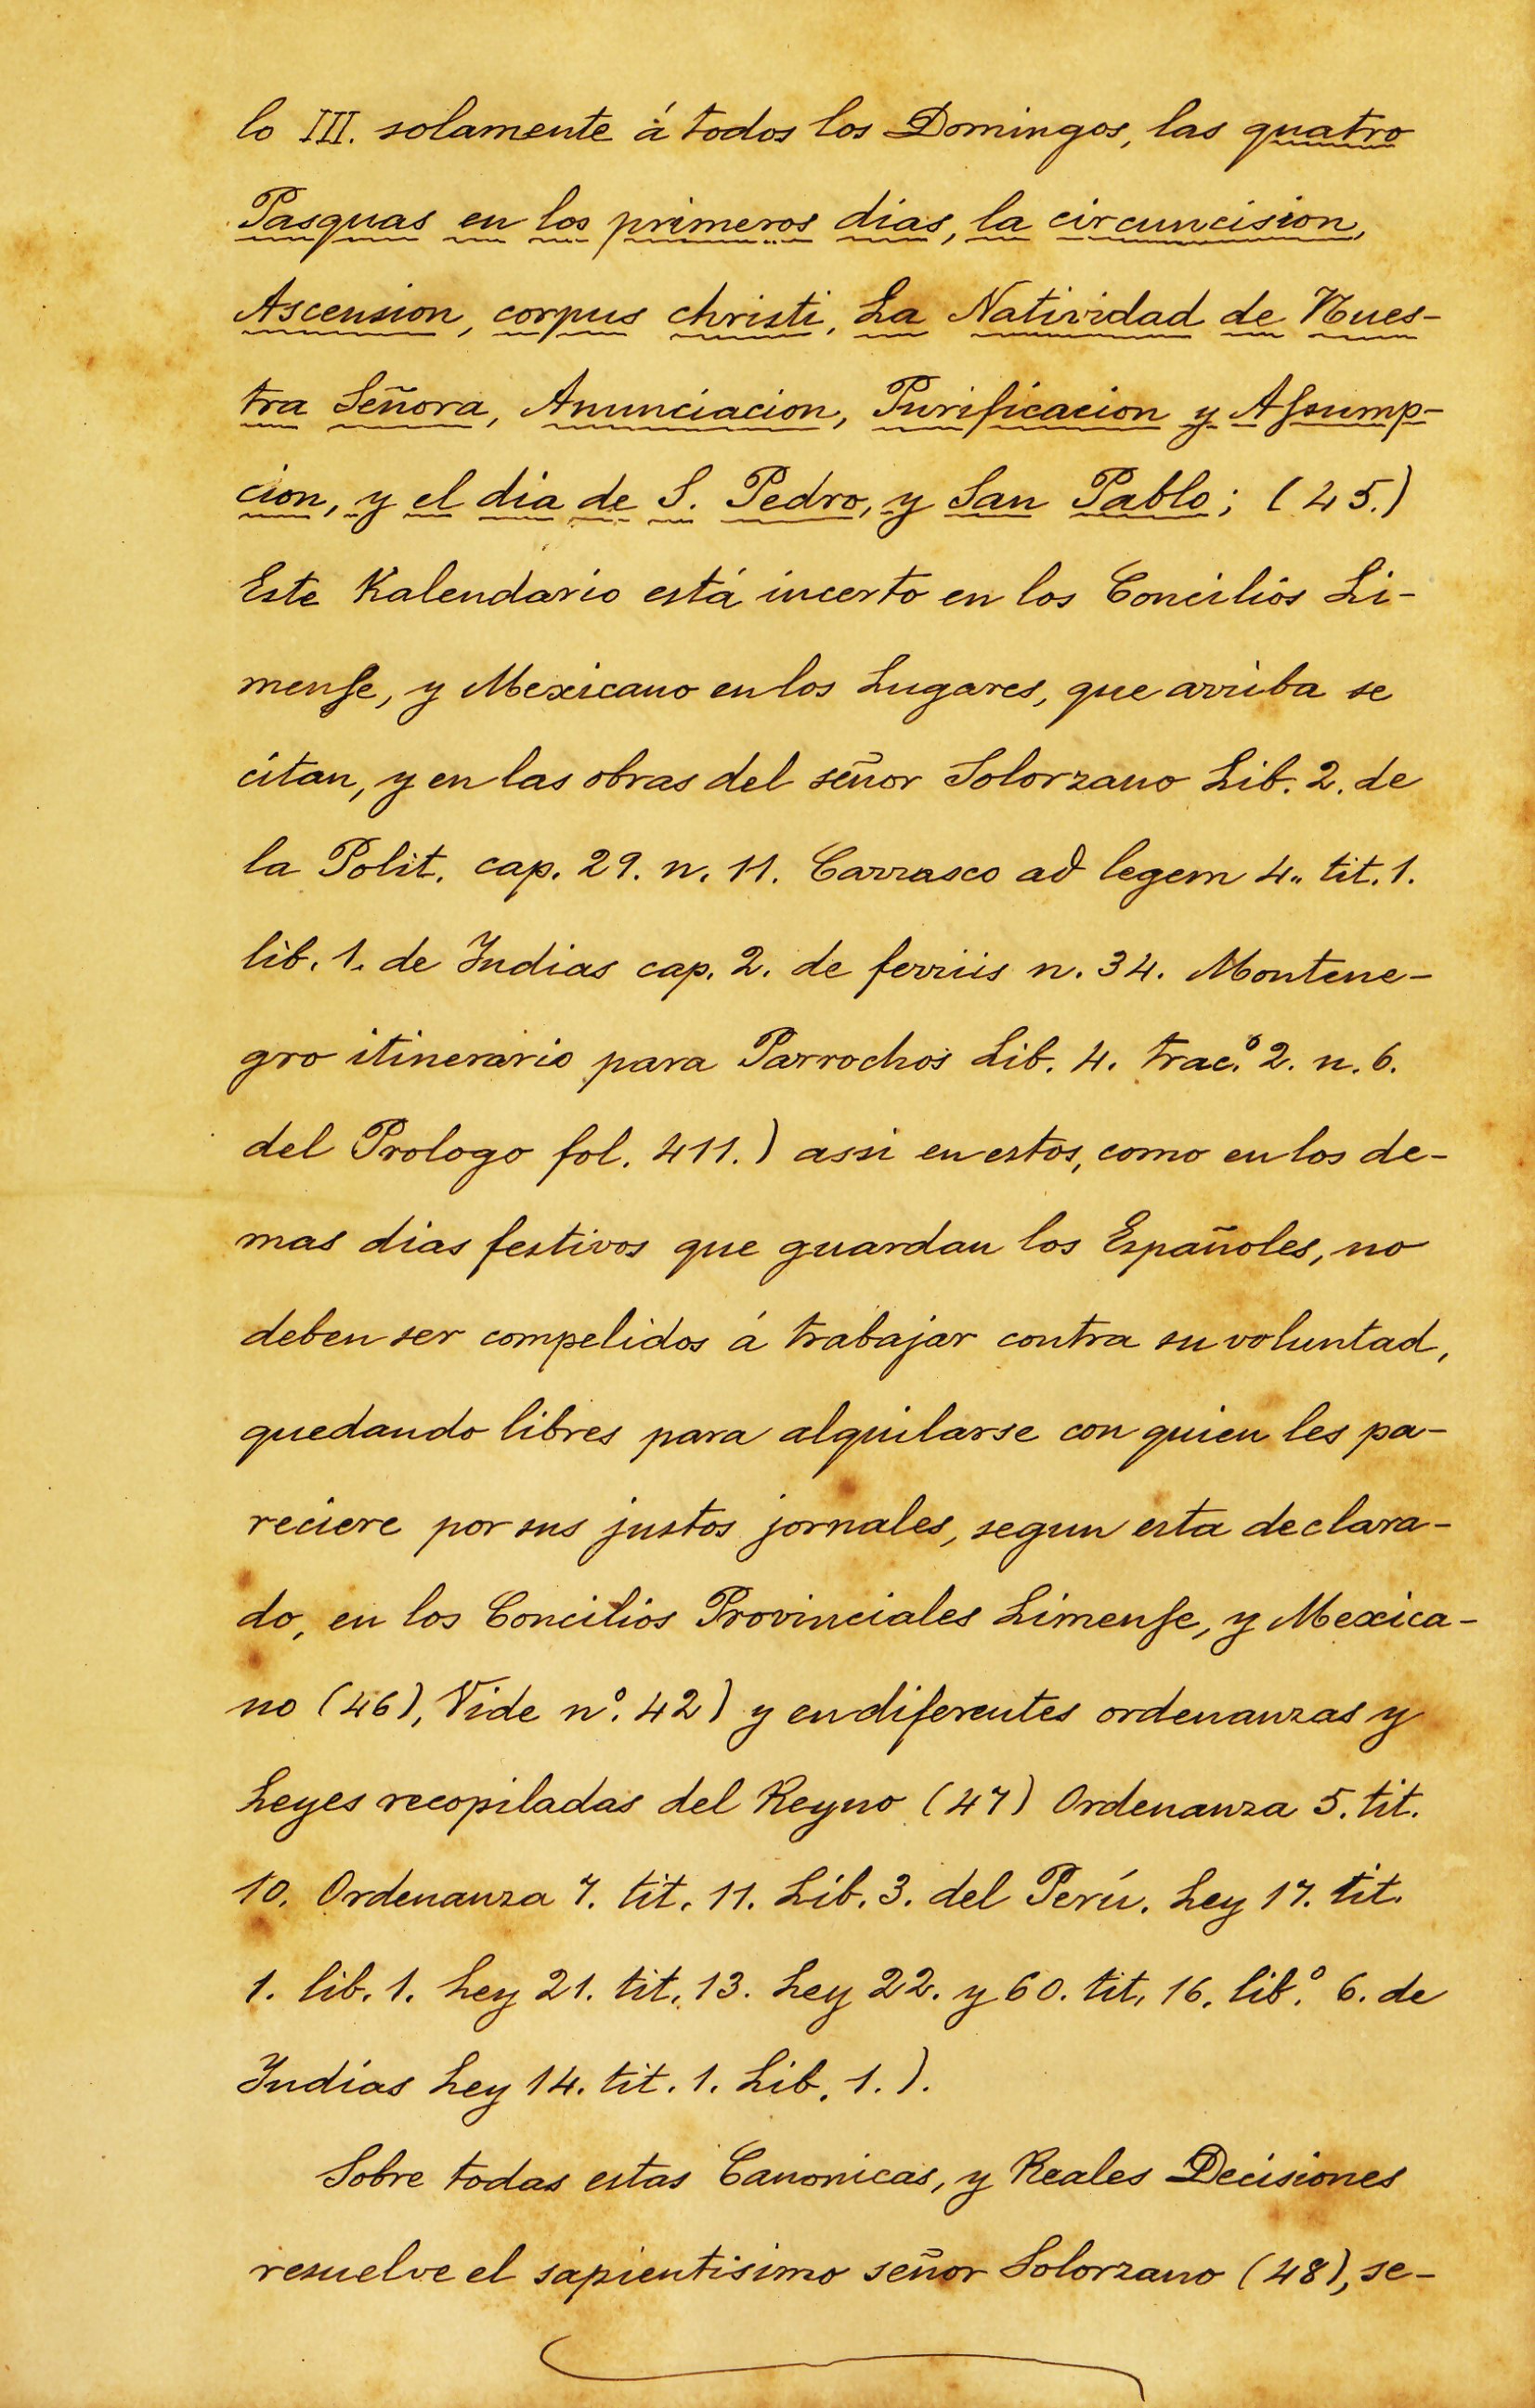 lo III. solamente á todos los Domingos, las quatro
Pasquas en los primeros dias, la circuncision,
Ascension, corpus christi, La Natividad de Nues-
tra Señora, Anunciacion, Purificacion y Assump-
cion, y el dia de S. Pedro, y San Pablo; (45.)
Este Kalendario está incerto en los Concilios Li-
mense, y Mexicano en los Lugares, que arriba se
citan, y en las obras del señor Solorzano Lib. 2. de
la Polit. cap. 29. n. 11. Carrasco ad legem 4.. tit. 1.
lib. 1. de Indias cap. 2. de ferriis n. 34. Montene-
gro itinerario para Parrochos Lib. 4. trac.º 2. n. 6.
del Prologo fol. 411.) assi en estos, como en los de-
mas dias festivos que guardan los Españoles, no
deben ser compelidos á trabajar contra su voluntad,
quedando libres para alquilarse con quien les pa-
reciere por sus justos jornales, segun esta declara-
do, en los Concilios Provinciales Limense, y Mexica-
no (46), Vide nº. 42) y en diferentes ordenanzas y
Leyes recopiladas del Reyno (47) Ordenanza 5. tit.
10. Ordenanza 7. tit. 11. Lib. 3. del Perú. Ley 17. tit.
1. lib. 1. Ley 21. tit. 13. Ley 22. y 60. tit. 16. lib.º 6. de
Indias Ley 14. tit. 1. Lib. 1.).
Sobre todas estas Canonicas, y Reales Decisiones
resuelve el sapientisimo señor Solorzano (48), se-